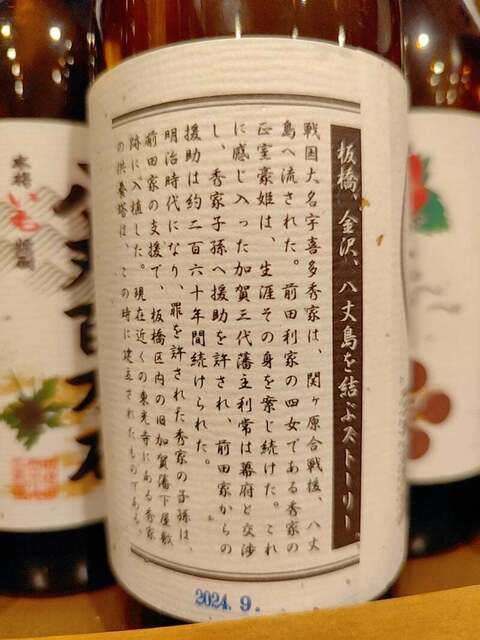 板橋、金沢、八丈島を結ぶストーリー
戦国大名宇喜多秀家は、関ヶ原合戦後、八丈
島へ流された。前田利家の四女である秀家の
正室豪姫は、生涯その身を案じ続けた。これ
に感じ入った加賀三代藩主利常は幕府と交渉
し、秀家子孫へ援助を許され、前田家からの
援助は約二百六十年間続けられた。
明治時代になり、罪を許された秀家の子孫は、
前田家の支援で、板橋区内の旧加賀藩下屋敷
跡に入植した。現在近くの東光寺にある秀家
の供養塔は、この時に建立されたものである。
2024.9.
本格
いも